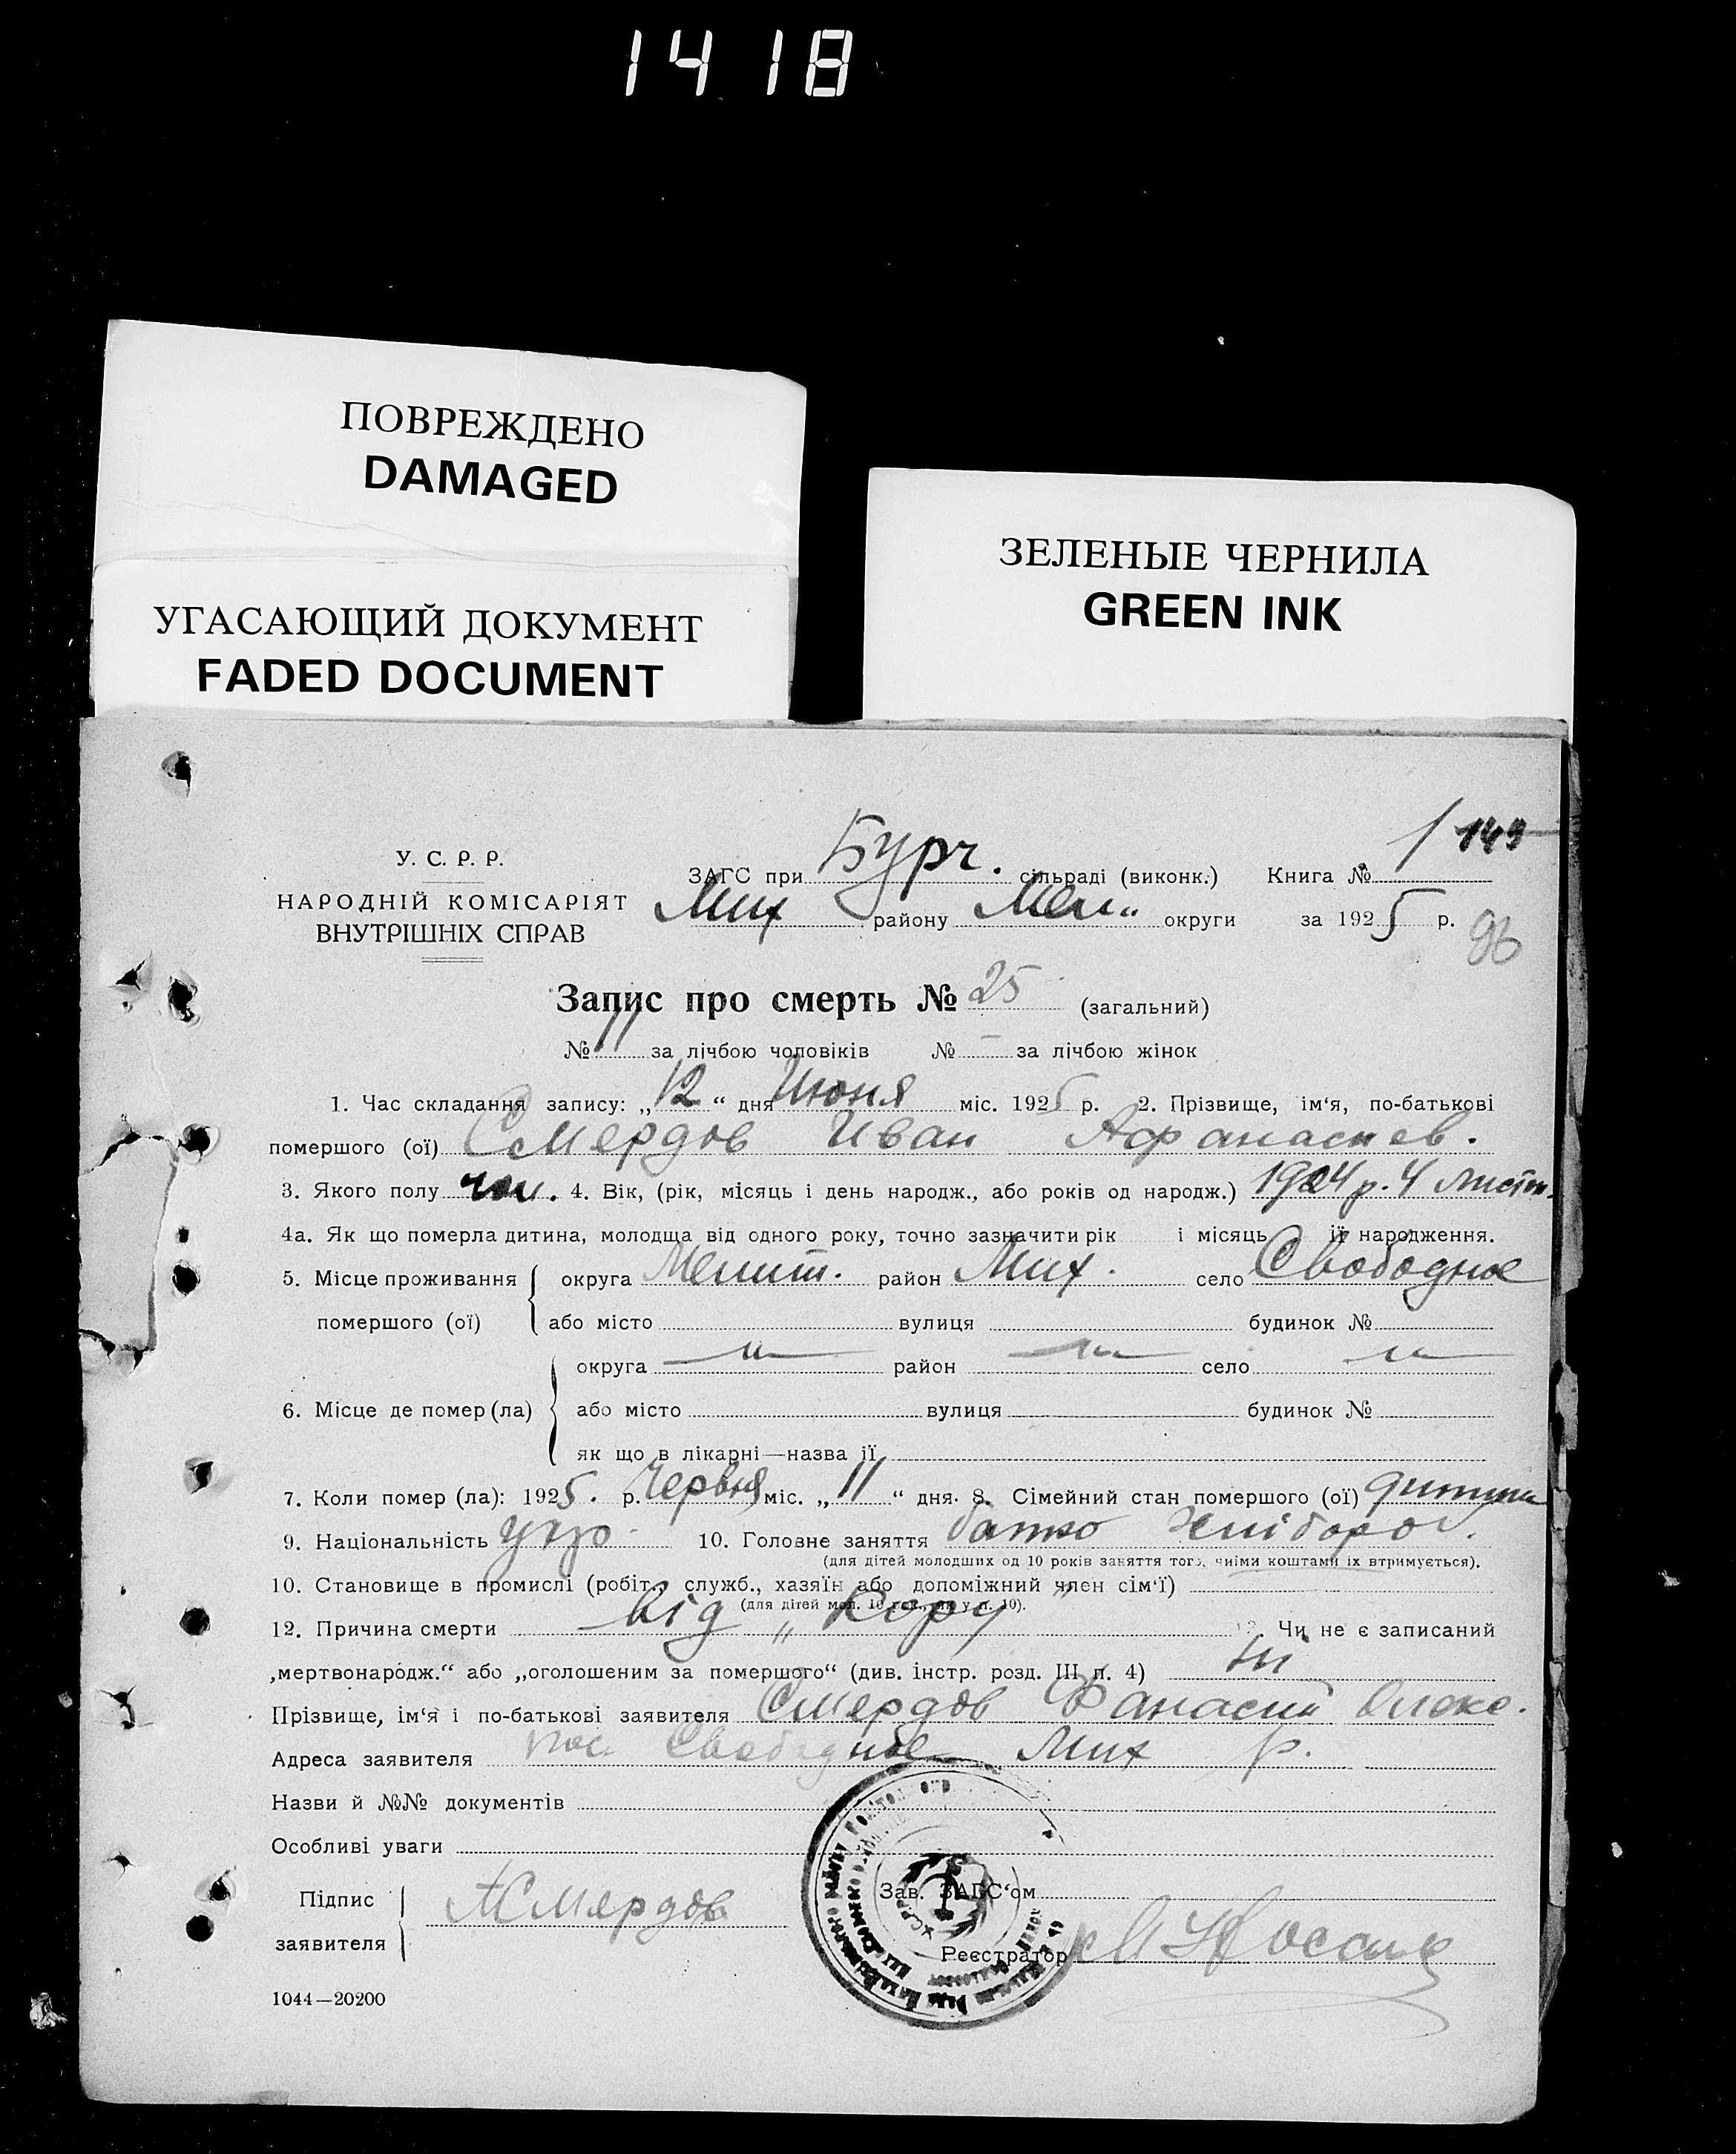 1418
ПОВРЕЖДЕНО
DAMAGED
УГАСАЮЩИЙ ДОКУМЕНТ
FADED DOCUMENT
ЗЕЛЕНЫЕ ЧЕРНИЛА
GREEN INK
У. С. Р. Р.
НАРОДНІЙ КОМІСАРІЯТ
ВНУТРІШНІХ СПРАВ
ЗАГС при Бурч. сільраді (виконк.) Книга № 1 149
Мих району Мел.. округи за 1925 р. 96
Запис про смерть № 25 (загальний)
№ 11 за лічбою чоловіків № — за лічбою жінок
1. Час складання запису: „12“ дня Июня міс. 1925 р. 2. Прізвище, ім‘я, по-батькові
помершого (ої) Смердов Иван Афанасиев.
3. Якого полу чол. 4. Вік, (рік, місяць і день народж., або років од народж.) 1924 р. 4 листоп.
4а. Як що померла дитина, молодща від одного року, точно зазначити рік і місяць її народження.
5. Місце проживання округа Мелит. район Мих. село Свободное
помершого (ої) або місто вулиця будинок №
округа —„— район —„— село —„—
6. Місце де помер (ла) або місто вулиця будинок №
як що в лікарні—назва її
7. Коли помер (ла): 1925. р. Червня міс. „11“ дня. 8. Сімейний стан помершого (ої) дитина
9. Національність укр. 10. Головне заняття батко хлібороб.
(для дітей молодших од 10 років заняття того, чиїми коштами їх втримується).
10. Становище в промислі (робіт., служб., хазяїн або допоміжний член сім‘ї)
(для дітей мол. 10 рок., як у п. 10).
12. Причина смерти від „Кору“ Чи не є записаний
„мертвонародж.“ або „оголошеним за помершого“ (див. інстр. розд. III п. 4) ні
Прізвище, ім‘я і по-батькові заявителя Смердов Фанасий Олекс.
Адреса заявителя пос. Свободное Мих р.
Назви й №№ документів
Особливі уваги
Підпис
заявителя АСмердов
Зав. ЗАГС‘ом
Реєстратор
1044—20200